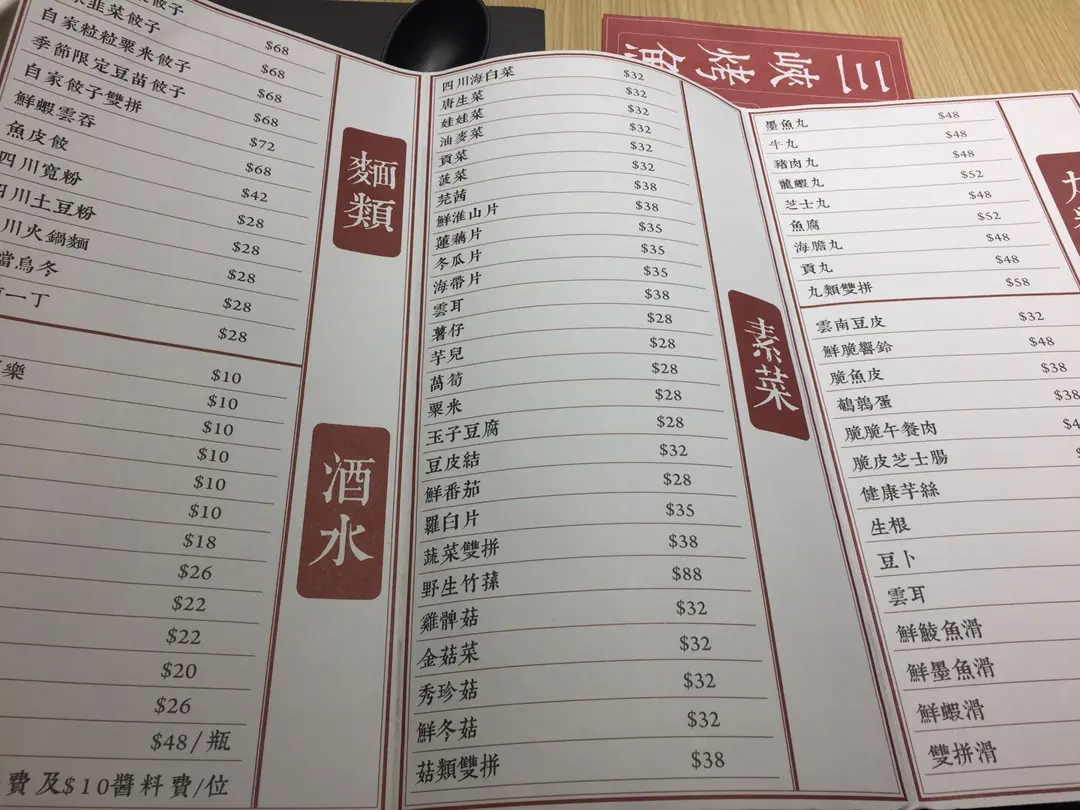 三峽烤魚
餃子 $68
韭菜餃子 $68
自家粒粒粟米餃子 $68
季節限定豆苗餃子 $68
自家餃子雙拼 $72
鮮蝦雲吞 $68
魚皮餃 $42
四川寬粉 $28
四川土豆粉 $28
川火鍋麵 $28
烏冬 $28
一丁 $28
麵類
樂 $10
$10
$10
$10
$10
$10
$18
$26
$22
$22
$20
$26
$48/瓶
費及$10醬料費/位
酒水
四川海白菜 $32
唐生菜 $32
娃娃菜 $32
油麥菜 $32
貢菜 $32
菠菜 $32
芫茜 $38
鮮淮山片 $38
蓮藕片 $35
冬瓜片 $35
海帶片 $35
雲耳 $38
薯仔 $28
芋兒 $28
萵筍 $28
粟米 $28
玉子豆腐 $28
豆皮結 $32
鮮番茄 $28
羅白片 $35
蔬菜雙拼 $38
野生竹蓀 $88
雞髀菇 $32
金菇菜 $32
秀珍菇 $32
鮮冬菇 $32
菇類雙拼 $38
素菜
墨魚丸 $48
牛丸 $48
豬肉丸 $48
龍蝦丸 $52
芝士丸 $48
魚腐 $52
海膽丸 $48
貢丸 $48
九類雙拼 $58
雲南豆皮 $32
鮮脆響鈴 $48
脆魚皮 $38
鵪鶉蛋 $38
脆脆午餐肉
脆皮芝士腸
健康芋絲
生根
豆卜
雲耳
鮮鯪魚滑
鮮墨魚滑
鮮蝦滑
雙拼滑